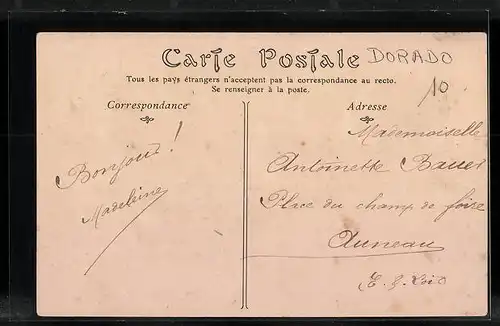 Carte Postale
DORADO
Tous les pays étrangers n'acceptent pas la correspondance au recto.
Se renseigner à la poste.
10
Correspondance
Adresse
Bonjour !
Madeleine
Mademoiselle
Antoinette Bauet
Place du champ de foire
Auneau
E. & Loir